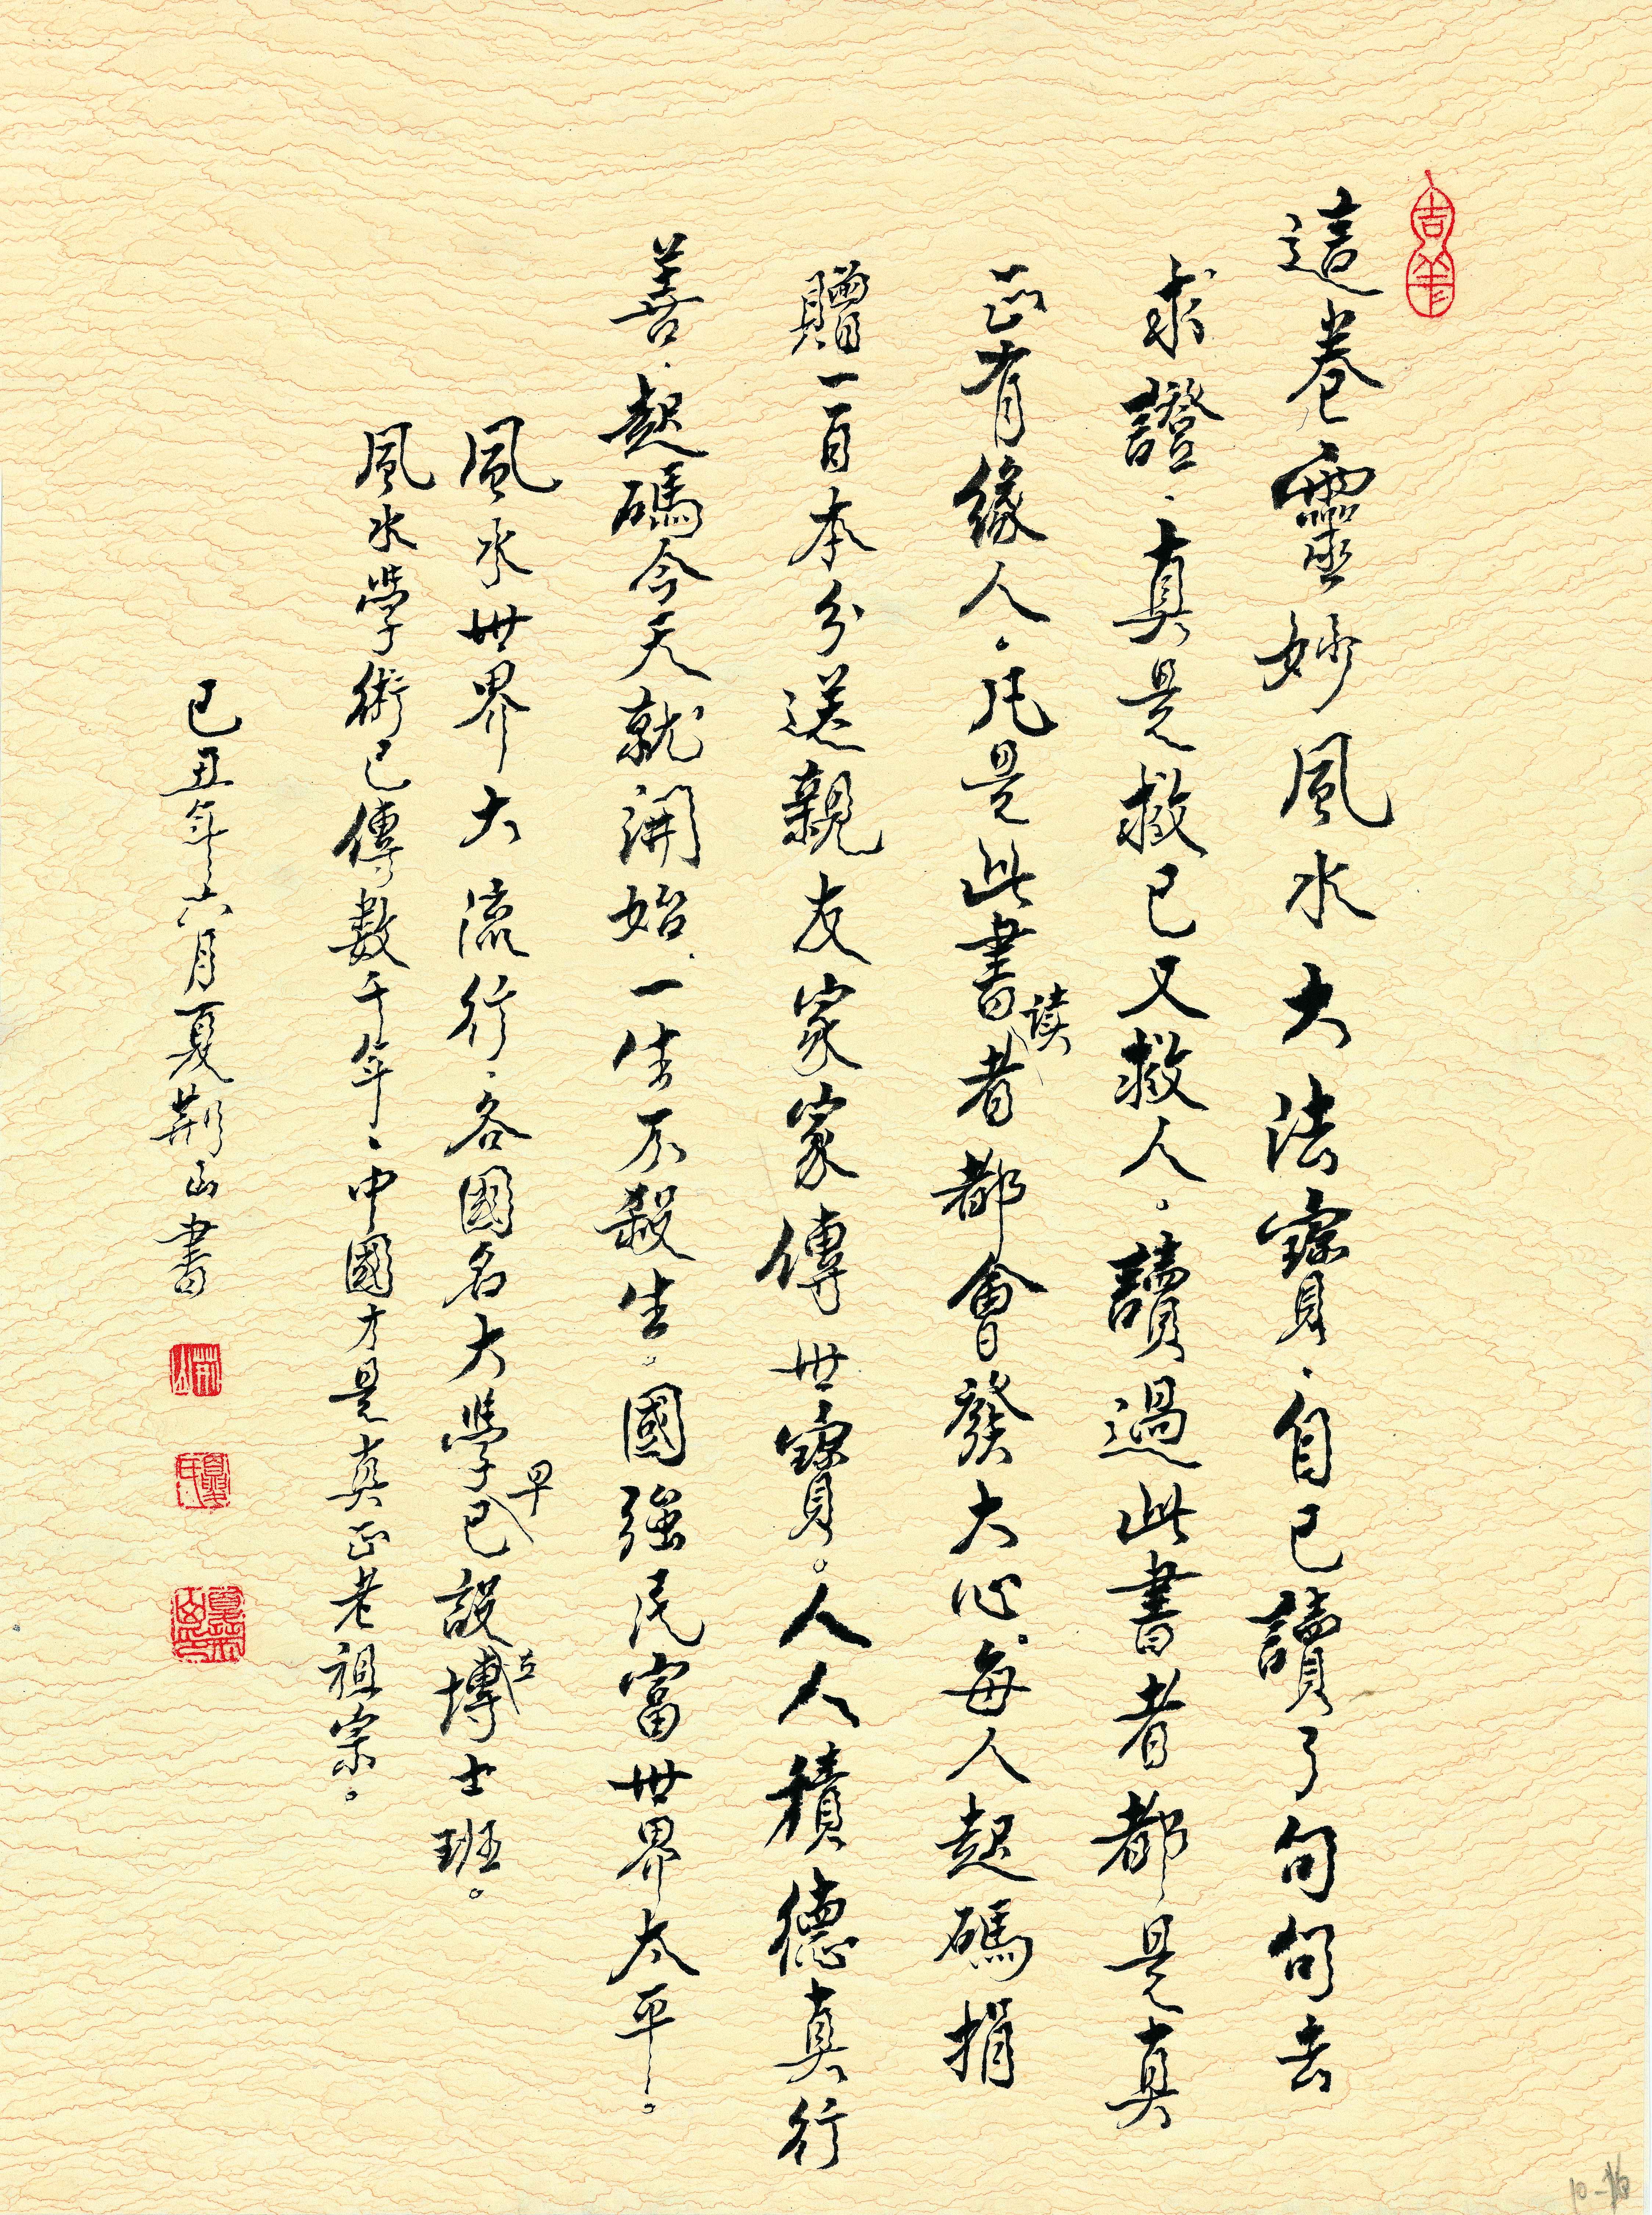 這卷靈妙風水大法寶、自己讀了句句去
求證、真是救己又救人。讀過此書者都是真
正有緣人。凡是此書读者都會發大心每人起碼捐
贈一百本分送親友家家傳世寶。人人積德真行
善、起碼今天就開始、一生不殺生。國強民富世界太平。
風水世界大流行、各國名大學早已設立博士班。
風水學術已傳數千年、中國才是真正老祖宗。
己丑年六月夏荊山書
荊山
10-16